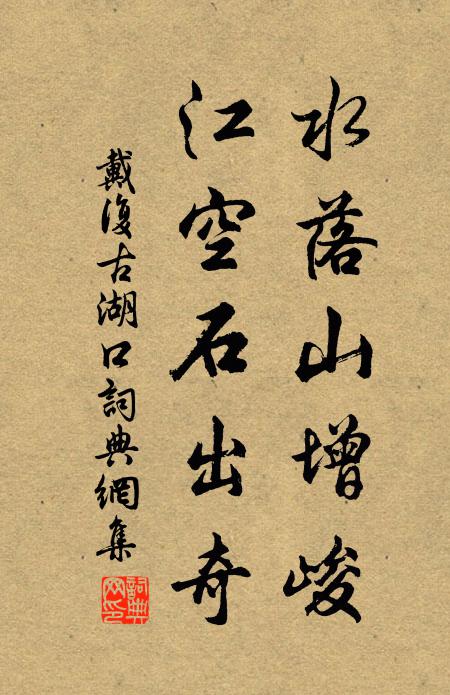 水落山增峻
江空石出奇
戴復古湖口詞典網集
詞典網印